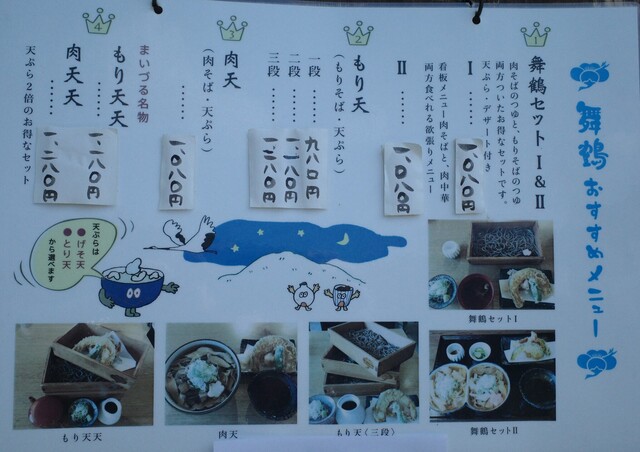 舞鶴おすすめメニュー
1
舞鶴セットⅠ&Ⅱ
肉そばのつゆと、もりそばのつゆ
両方ついたお得なセットです。
天ぷら・デザート付き
Ⅰ……
一、〇八〇円
看板メニュー肉そばと、肉中華
両方食べれる欲張りメニュー
Ⅱ……
一、〇八〇円
2
もり天
(もりそば・天ぷら)
一段……
九八〇円
二段……
一、一八〇円
三段……
一、三八〇円
3
肉天
(肉そば・天ぷら)
……
一、〇八〇円
4
まいづる名物
もり天天
……
一、二八〇円
肉天天
……
一、二八〇円
天ぷら2倍のお得なセット
天ぷらは
●げそ天
●とり天
から選べます
舞鶴セットⅠ
もり天天
肉天
もり天(三段)
舞鶴セットⅡ